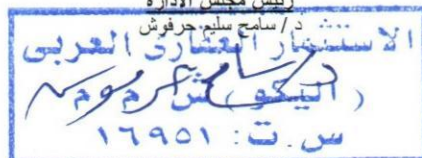 رئيس مجلس الادارة
د / سامح سليم حرفوش
الاستثمار العقارى العربى
( اليكو ) ش م م
س . ت : ١٦٩٥١